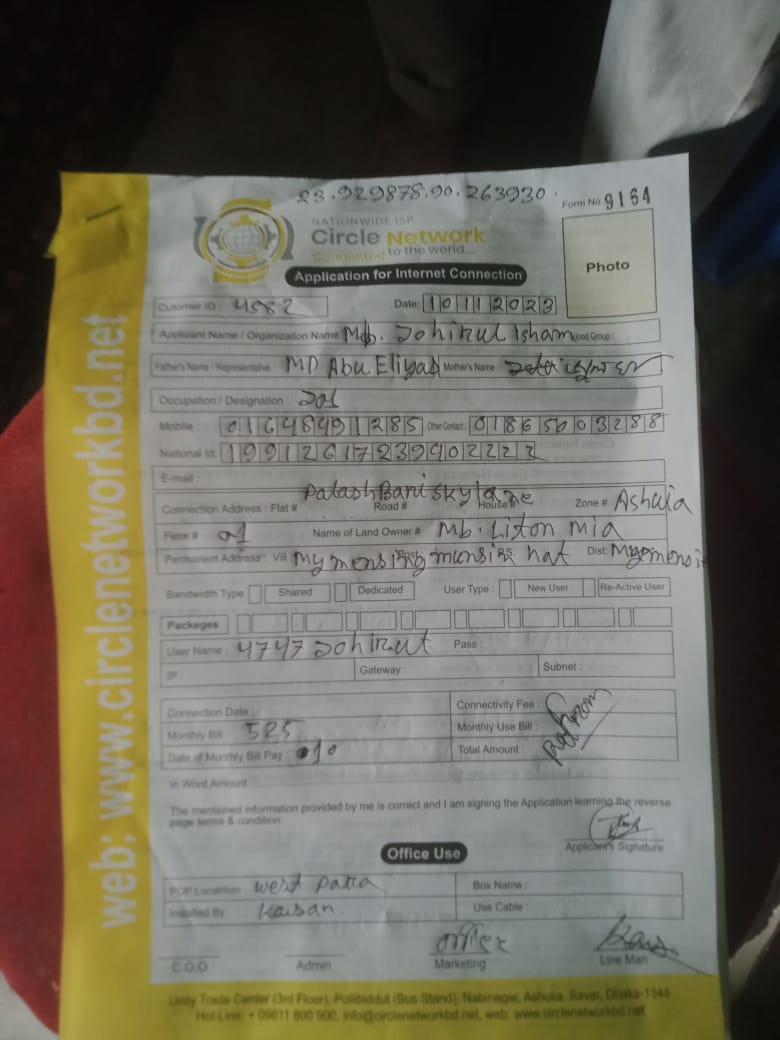 23.929878.90.263930.
Form No 9164
NATIONWIDE ISP
Circle Network
Connected to the world...
Photo
Application for Internet Connection
Cutomer ID : 4582 Date: 10112023
Applicant Name / Organization Name Md. Johirul Isham Blood Group :
Father's Name / Representative : MD Abu Eliyas Mother's Name
Occupation / Designation :
Mobile : 01648491285 Other Contact : 01865003288
National Id: 19912617239902222
E-mail :
Palashbari skylane
Connection Address : Flat # Road # House # Zone # Ashulia
Floor # 01 Name of Land Owner # Mb. Liton mia
Permanent Address: Vill mymensing munsir hat Dist:
Bandwidth Type Shared Dedicated User Type : New User Re-Active User
Packeges
User Name : 4747 Johirul Pass :
IP : Gateway : Subnet :
Connection Date : Connectivity Fee :
Monthly Bill 525 Monthly Use Bill :
Date of Monthly Bill Pay : Total Amount :
In Word Amount
The mentioned information provided by me is correct and I am signing the Application learning the reverse
page terms & condition.
Applicant's Signature
Office Use
POP Locatrion : west Para Box Name :
Installed By Use Cable :
office
C.O.O Admin Marketing Line Man
Unity Trade Center (3rd Floor), Pollibiddut (Bus Stand), Nabinagar, Ashulia, Savar, Dhaka-1344
Hot-Line: + 09611 800 900, info@circlenetworkbd.net, web: www.circlenetworkbd.net
web: www.circlenetworkbd.net